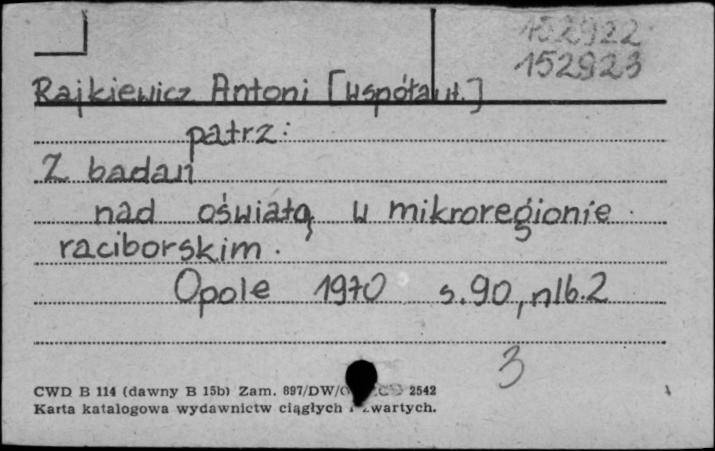 152922
152923
Rajkiewicz Antoni [współaut.]
patrz:
Z badań
nad oświatą w mikroregionie
raciborskim.
Opole 1970 s.90, nlb.2
3
CWD B 114 (dawny B 15b) Zam. 897/DW/ 2542
Karta katalogowa wydawnictw ciągłych i zwartych.